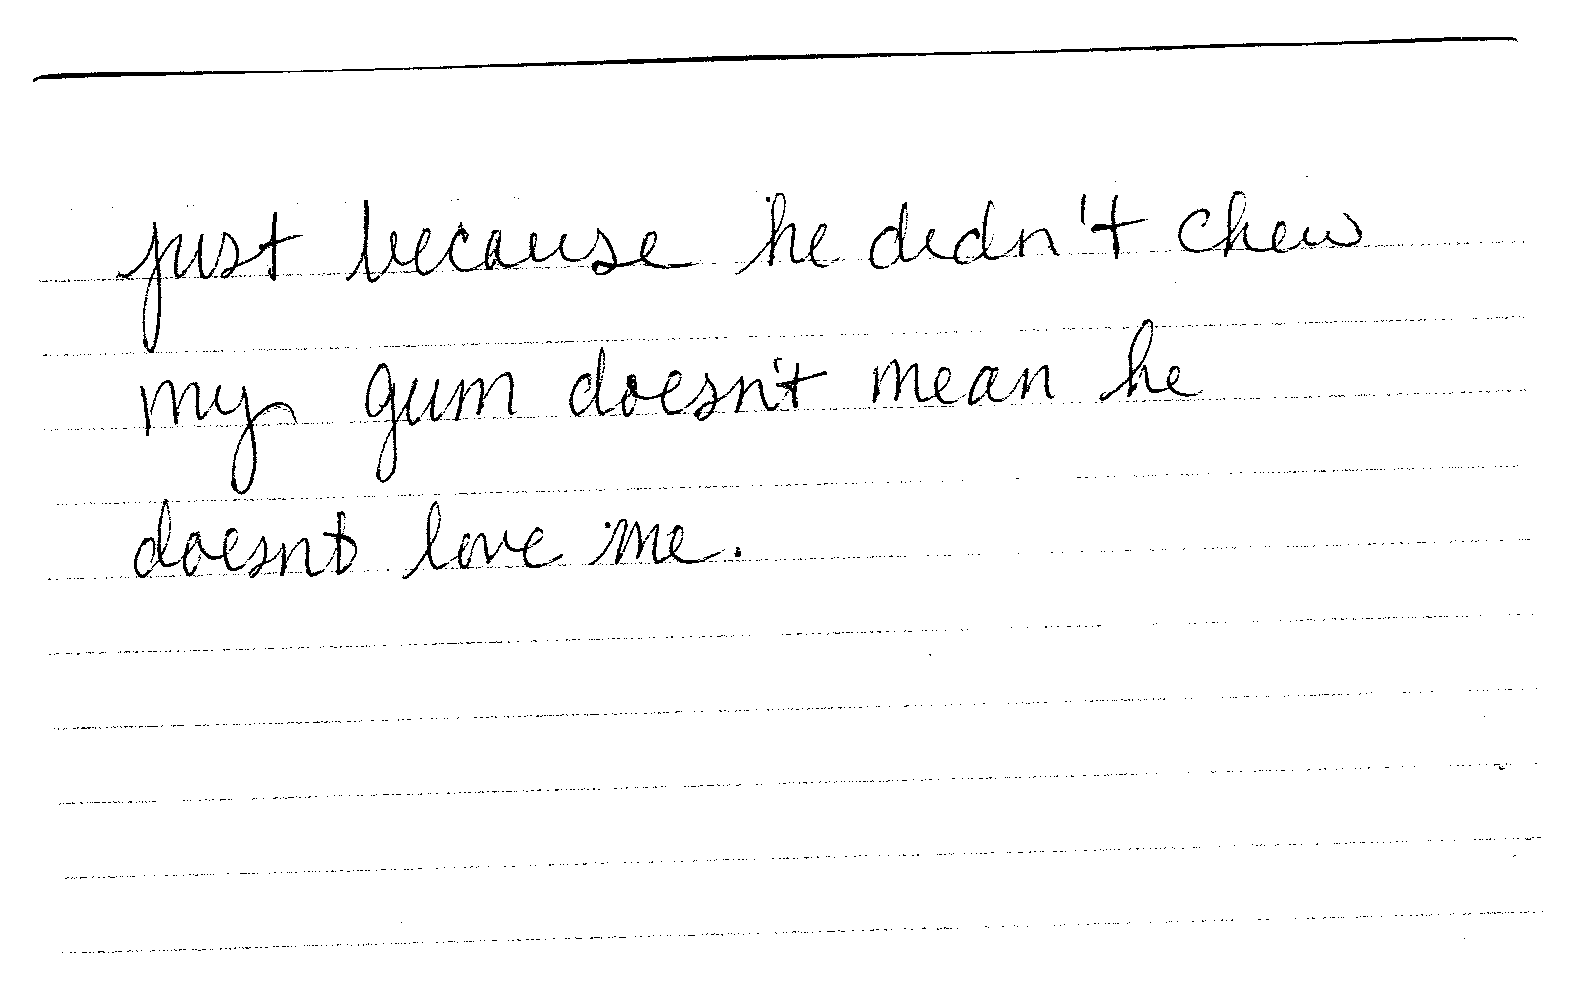 just because he didn't chew
my gum doesn't mean he
doesnt love me.